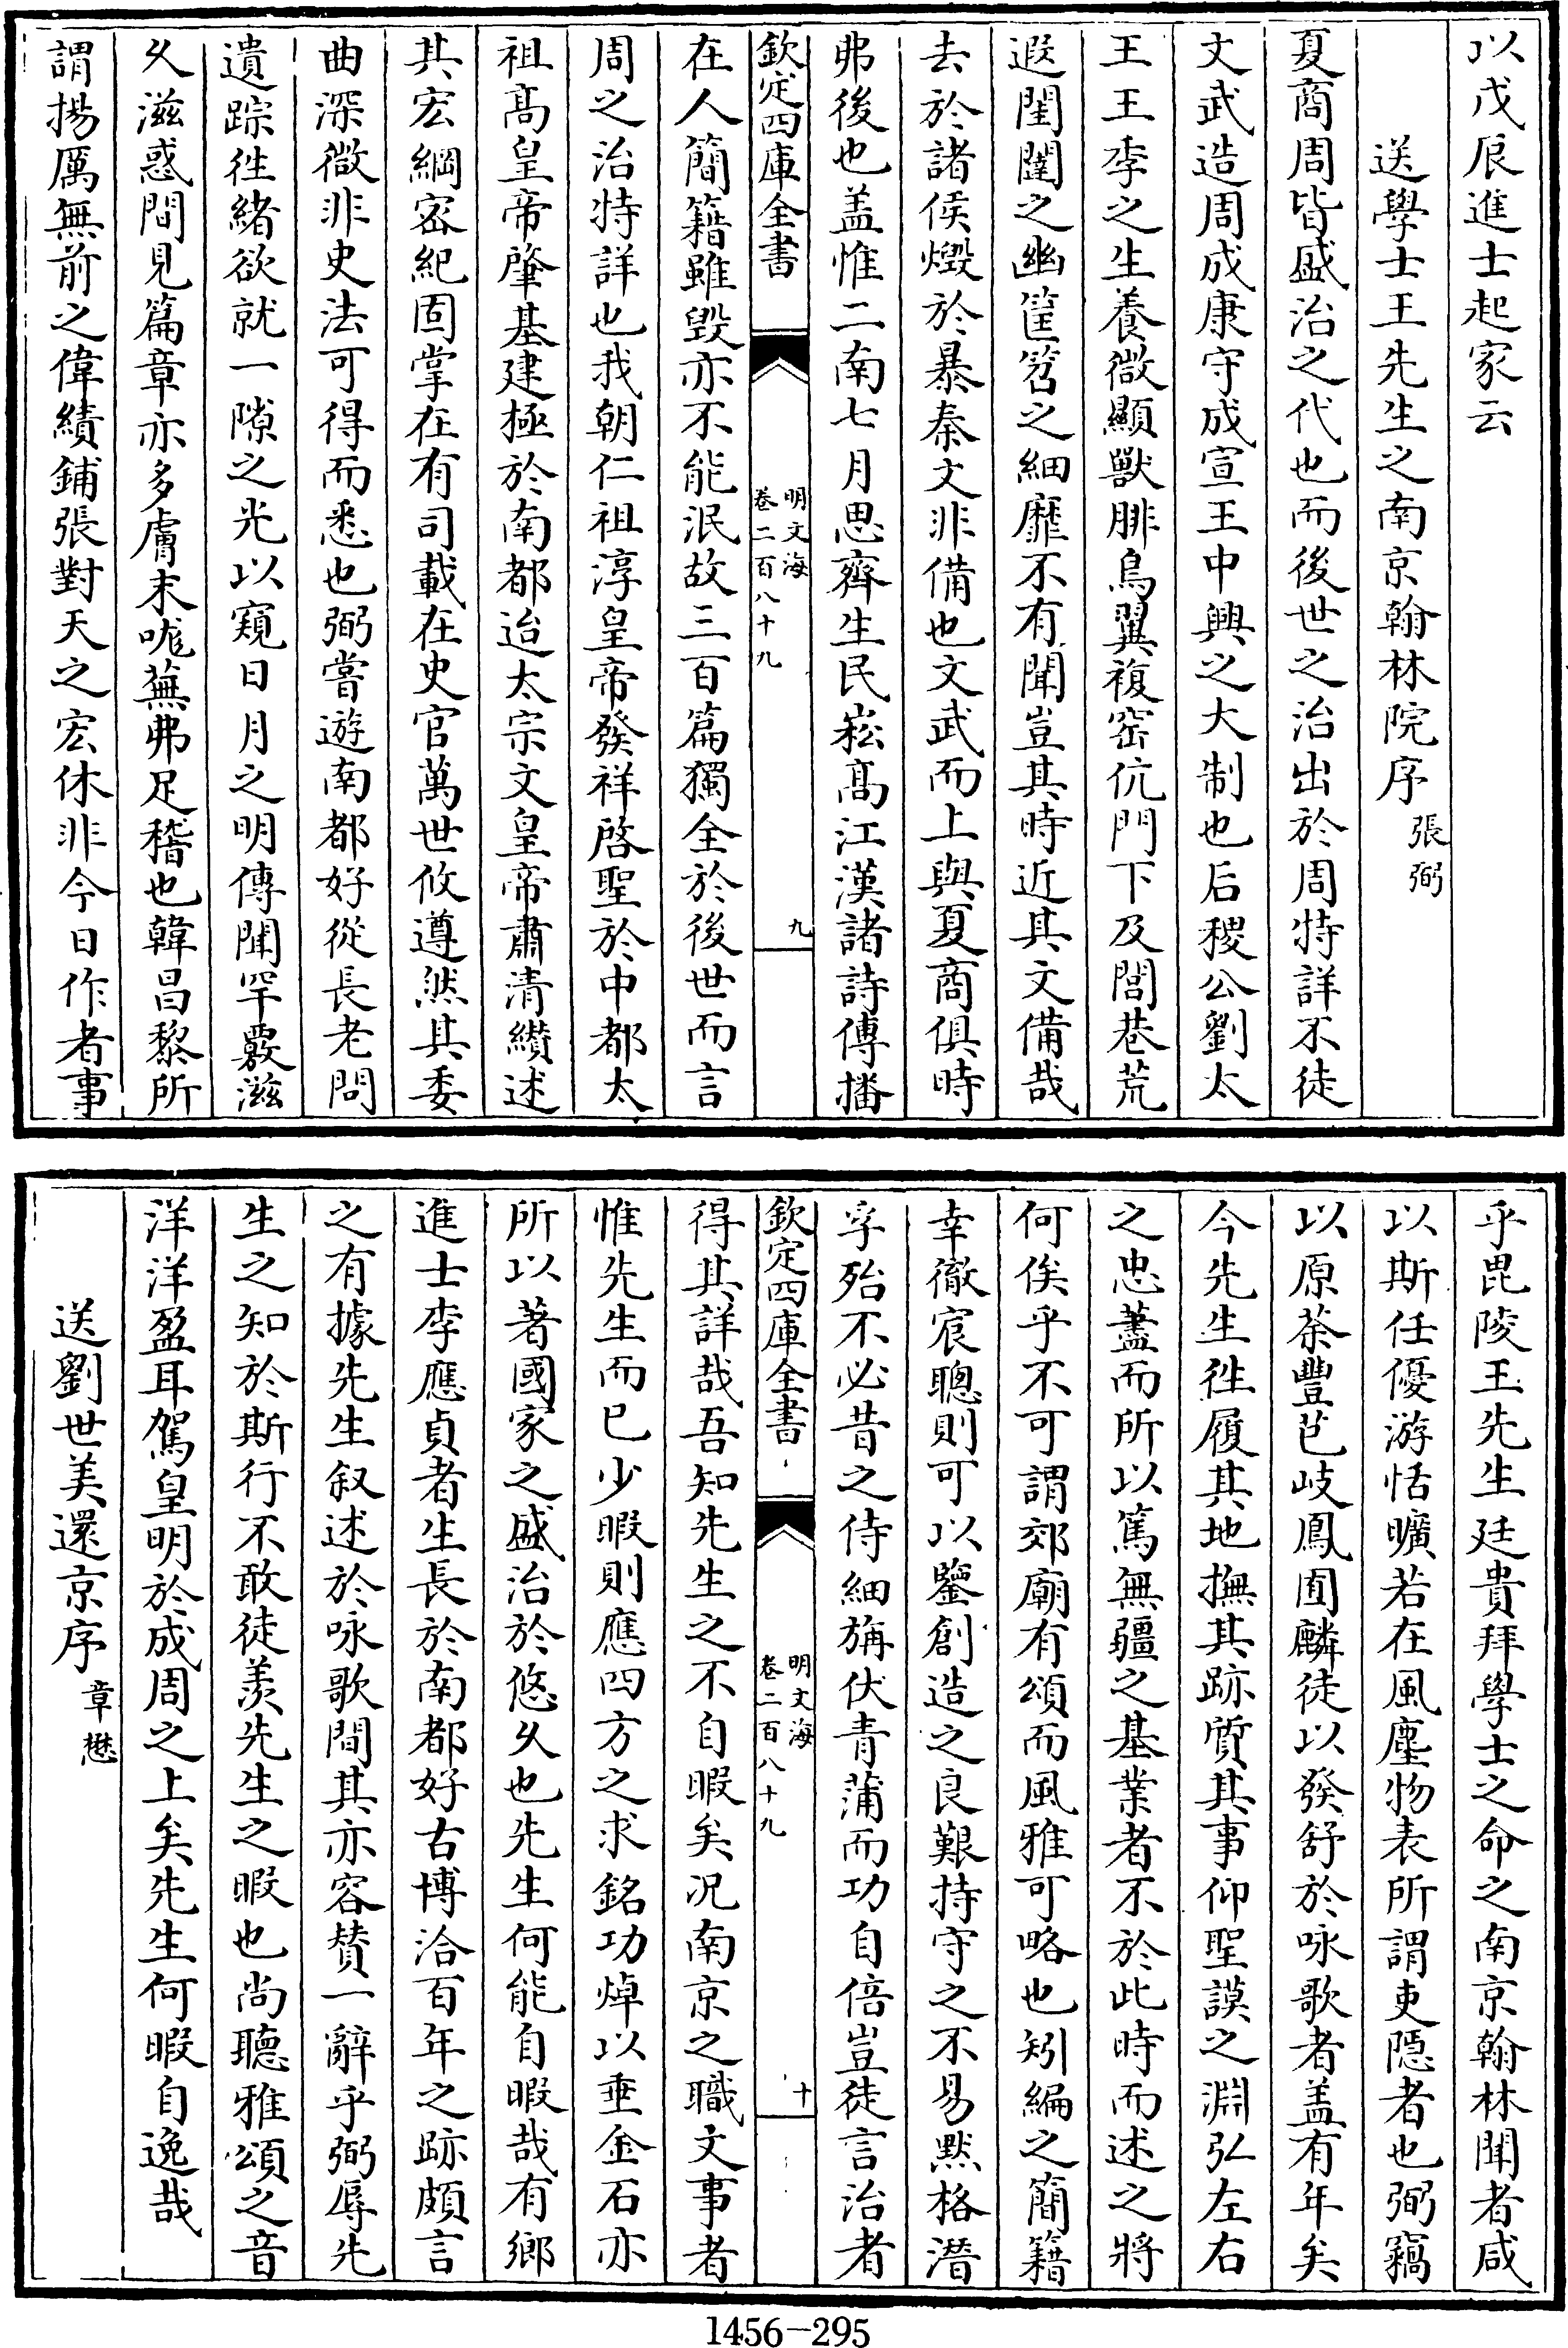 以戊辰進士起家云
送學士王先生之南京翰林院序　張弼
夏商周皆盛治之代也而後世之治出於周特詳不徒
文武造周成康守成宣王中興之大制也后稷公劉太
王王季之生養微顯獸腓鳥翼複窑伉門下及閭巷荒
遐閨闥之幽筐筥之細靡不有聞豈其時近其文備哉
去於諸侯燬於暴秦文非備也文武而上與夏商俱時
弗後也盖惟二南七月思齊生民崧高江漢諸詩傳播
欽定四庫全書
明文海
卷二百八十九
九
在人簡籍雖毁亦不能泯故三百篇獨全於後世而言
周之治特詳也我朝仁祖淳皇帝發祥啓聖於中都太
祖髙皇帝肇基建極於南都迨太宗文皇帝肅清纘述
其宏綱宻紀固掌在有司載在史官萬世攸遵然其委
曲深微非史法可得而悉也弼嘗遊南都好從長老問
遺踪徃緒欲就一隙之光以窺日月之明傳聞罕覈滋
乆滋惑間見篇章亦多膚末哤蕪弗足稽也韓昌黎所
謂揚厲無前之偉績鋪張對天之宏休非今日作者事
乎毘陵王先生廷貴拜學士之命之南京翰林聞者咸
以斯任優游恬曠若在風塵物表所謂吏隠者也弼竊
以原荼豐芑岐鳳囿麟徒以發舒於咏歌者盖有年矣
今先生徃履其地撫其跡質其事仰聖謨之淵弘左右
之忠藎而所以篤無疆之基業者不於此時而述之將
何俟乎不可謂郊廟有頌而風雅可略也矧編之簡籍
幸徹宸聰則可以鑒創造之良艱持守之不易黙格潛
孚殆不必昔之侍細旃伏青蒲而功自倍豈徒言治者
欽定四庫全書
明文海
卷二百八十九
十
得其詳哉吾知先生之不自暇矣况南京之職文事者
惟先生而已少暇則應四方之求銘功焯以垂金石亦
所以著國家之盛治於悠乆也先生何能自暇哉有鄉
進士李應貞者生長於南都好古博洽百年之跡頗言
之有據先生叙述於咏歌間其亦容賛一辭乎弼辱先
生之知於斯行不敢徒羡先生之暇也尚聽雅頌之音
洋洋盈耳駕皇明於成周之上矣先生何暇自逸哉
送劉世美還京序　章懋
1456-295